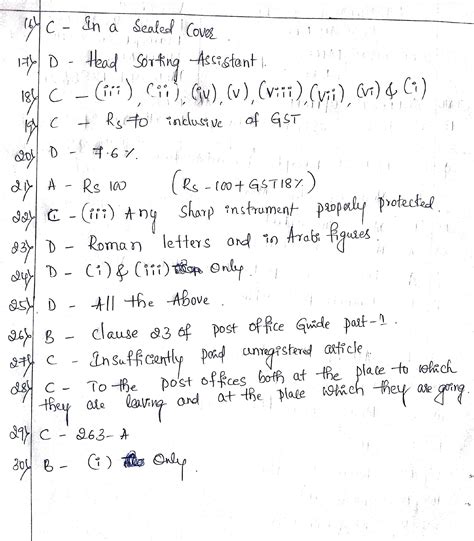 16) C - In a Sealed Cover
17) D - Head Sorting Assistant.
18) C - (iii), (ii), (iv), (v), (viii), (vii), (vi) & (i)
19) C - Rs 70 inclusive of GST
20) D - 7.6 %.
21) A - Rs 100 (Rs - 100 + GST 18%)
22) C - (iii) Any sharp instrument properly protected.
23) D - Roman letters and in Arabi figures.
24) D - (i) & (iii) Only.
25) D - All the Above.
26) B - Clause 23 of post office Guide part-1.
27) C - Insufficiently paid unregistered article.
28) C - To the post offices both at the place to which
they are leaving and at the place which they are going.
29) C - 263-A
30) B - (i) Only.